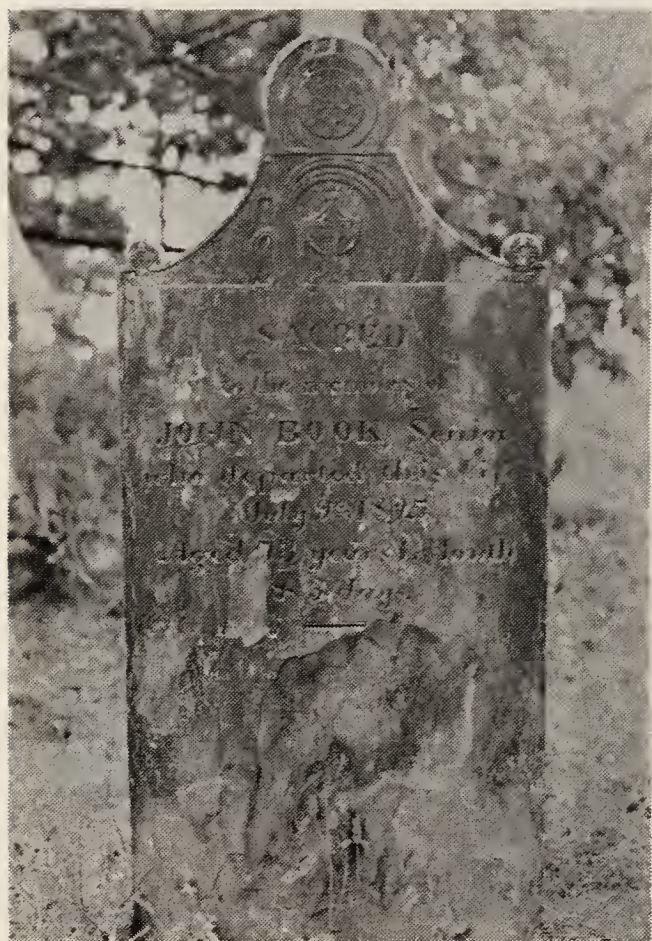 SACRED
to the memory of
JOHN BOOK, Senior
who departed this life
July
Aged years Month
& days